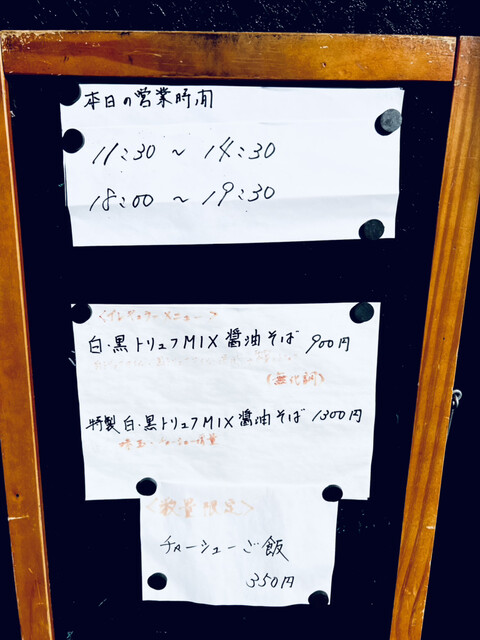 本日の営業時間
11:30 ~ 14:30
18:00 ~ 19:30
<イレギュラーメニュー>
白・黒トリュフMIX醤油そば 900円
(無化調)
特製白・黒トリュフMIX醤油そば 1300円
味玉・チャーシュー増量
<数量限定>
チャーシューご飯
350円